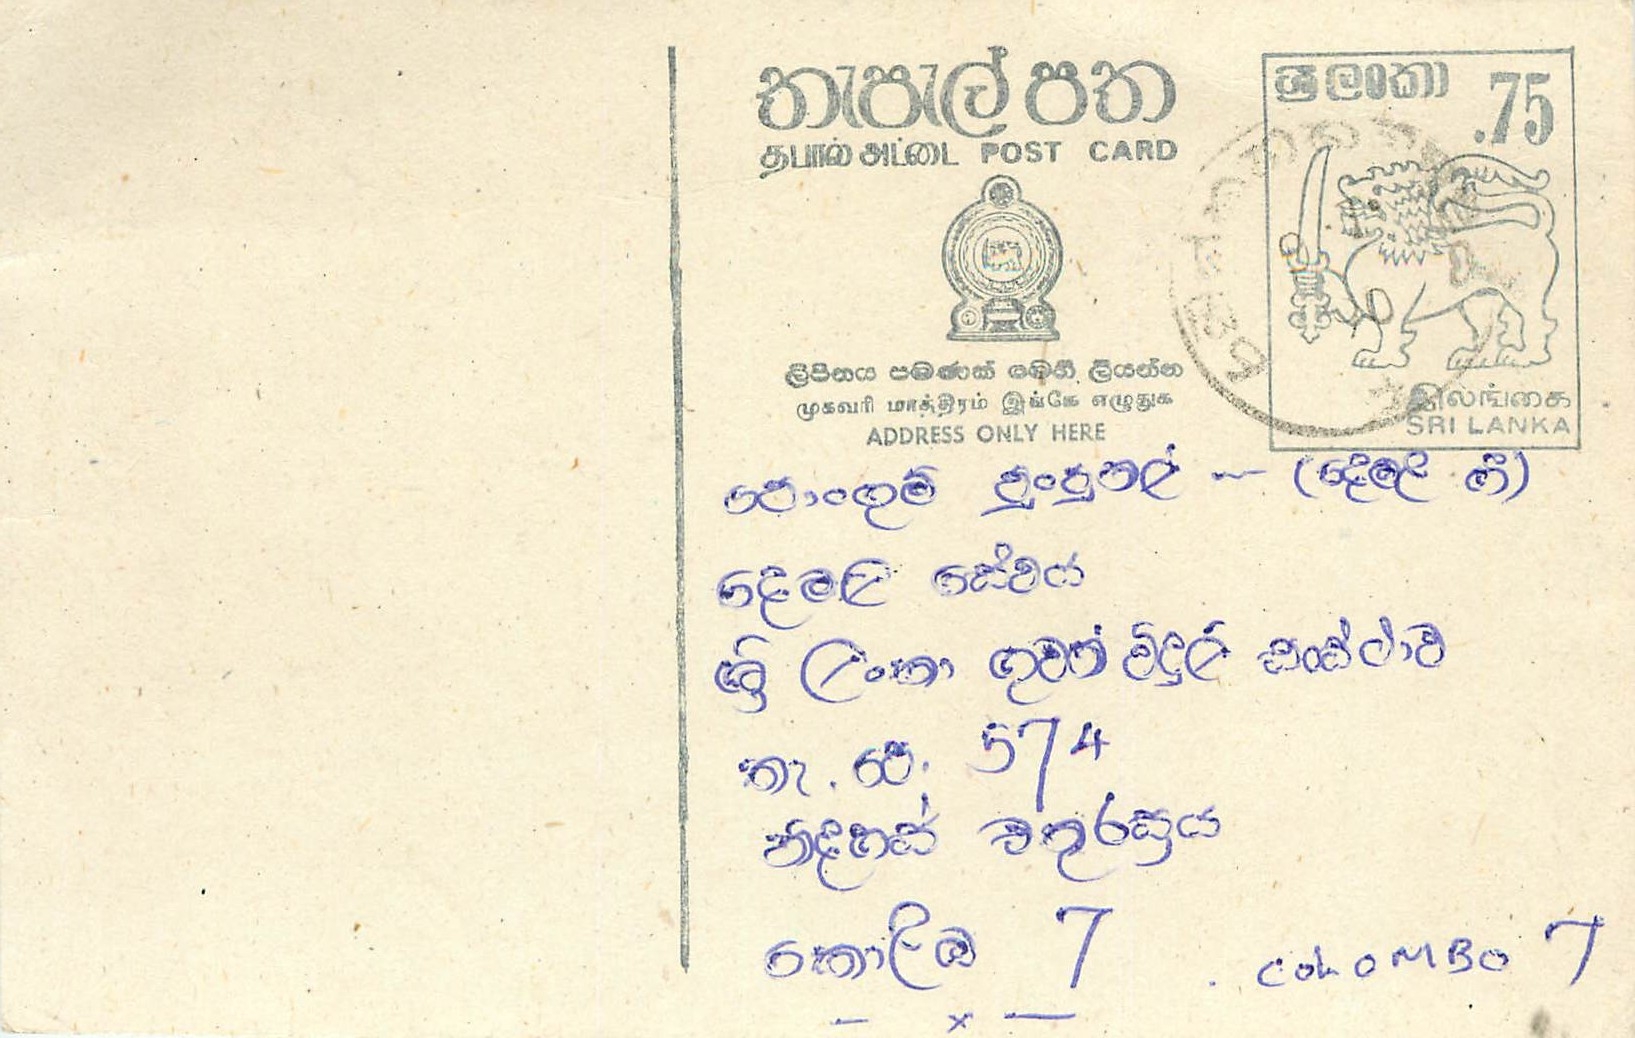 තැපැල් පත
ශ්‍රී ලංකා
.75
தபால் அட்டை POST CARD
ලිපිනය පමණක් මෙහි ලියන්න
முகவரி மாத்திரம் இங்கே எழுதுக
ADDRESS ONLY HERE
ஸ்ரீலங்கை
SRI LANKA
පොංගුම් පූංපුනල් — (දෙමළ ගී)
දෙමළ සේවය
ශ්‍රී ලංකා ගුවන් විදුලි සංස්ථාව
තැ. පෙ. 574
නිදහස් චතුරස්‍රය
කොළඹ 7 . COLOMBO 7
— x —